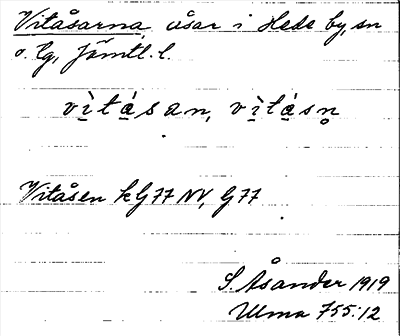 Vitåsarna, åsar i Hede by, sn
o. tg, Jämtl. l.
vì̱tá̱san, vì̱tá̱sn̥
Vitåsen k G77 NV, G77
S. Åsander 1919
Ulma 755:12